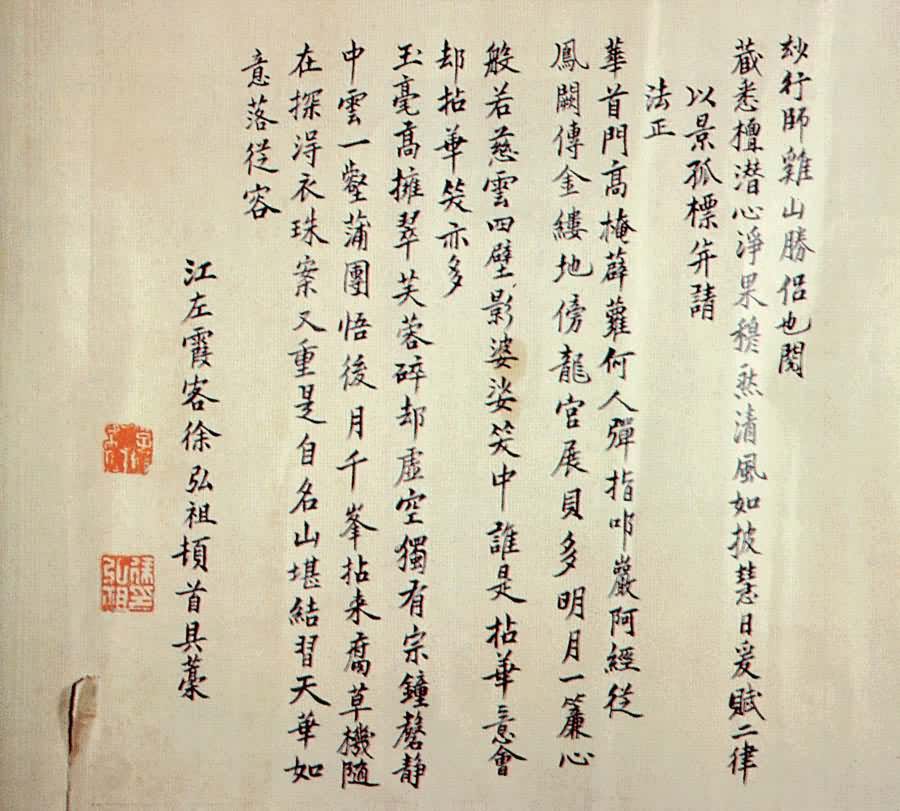 玅行師雞山勝侶也閱
藏悉檀潛心淨果穆然清風如披慧日爰賦二律
以景孤標并請
法正
華首門高掩薜蘿何人彈指叩巖阿經從
鳳闕傳金縷地傍龍宮展貝多明月一簾心
般若慈雲四壁影婆娑笑中誰是拈華意會
却拈華笑亦多
玉毫高擁翠芙蓉碎却虛空獨有宗鐘磬静
中雲一壑蒲團悟後月千峯拈来腐草機隨
在探淂衣珠案又重是自名山堪結習天華如
意落從容
江左霞客徐弘祖頓首具藁
徐弘祖印